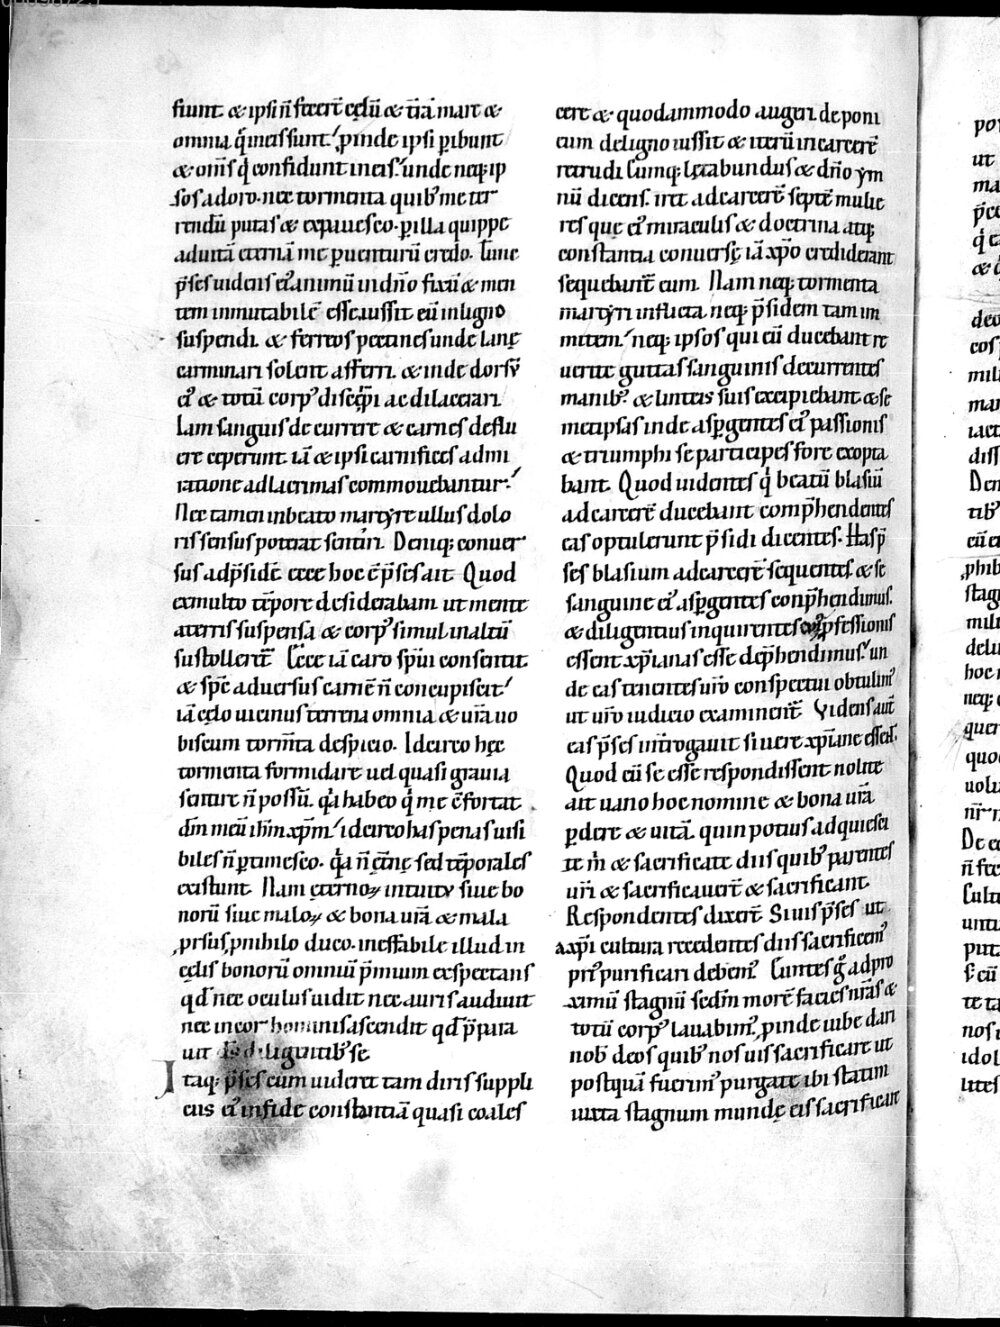 fiunt & ipsi ñ fecer̄t cęlū & t̄rā mare &
omnia q̄ in eis sunt. ꝓinde ipsi ꝑibunt
& om̄s q̄ confidunt in eis. unde neq; ip
sos adoro. nec tormenta quib' me ter
rendū putas & expauesco. ꝑ illa quippe
ad uitā eternā me ꝑuenturū credo. Tunc
p̄ses uidens ei' animū in dn̄o fixū & men
tem inmutabilē esse. iussit eū in ligno
suspendi. & ferreos pectines unde lanę
carminari solent afferri. & inde dorsū
ei' & totū corp' discęrpi ac dilacerari.
Iam sanguis decurrere & carnes deflu
ere ceperunt. iā & ipsi carnifices admi
ratione ad lacrimas commouebantur.
Nec tamen in beato martyre ullus dolo
ris sensus poterat sentiri. Deniq; conuer
sus ad p̄sidē ecce hoc ē p̄ses ait. Quod
ex multo tēpore desiderabam ut mente
a terris suspensa & corp' simul in altū
sustolleret̄. Ecce iā caro sp̄ui consentit.
& sp̄c aduersus carnē ñ concupiscit.
iā cęlo uicinus terrena omnia & ur̄a uo
biscum torm̄ta despicio. Idcirco hęc
tormenta formidare uel quasi grauia
sentire ñ possū. q̄a habeo q̄ me c̄fortat
dn̄m meū ih̄m xp̄m. idcirco has penas uisi
biles ñ ꝑtimesco. q̄a ñ ęt̄nę sed tēporales
existunt. Nam ęternoꝝ intuitu siue bo
norū siue maloꝝ & bona ur̄a & mala
ꝓrsus ꝓ nihilo duco. ineffabile illud in
cęlis bonorū omniū p̄mium exspectans
qd̄ nec oculus uidit nec auris audiuit
nec in cor hominis ascendit qd̄ p̄para
uit d̄s diligentib' se
Itaq; p̄ses cum uideret tam diris suppli
ciis ei' in fide constantiā quasi coales
cere & quodammodo augeri deponi
eum de ligno iussit & iterū in carcerē
retrudi. Cumq; lętabundus & dn̄o ym
nū dicens. iret ad carcerē septē mulie
res que ei' miraculis & doctrina atq;
constantia conuersę iā xp̄o crediderant
sequebant̄ eum. Nam neq; tormenta
martyri inflicta neq; p̄sidem tam im
mitem. neq; ipsos qui eū ducebant re
uerite guttas sanguinis decurrentes
manib' & linteis suis excipiebant & se
metipsas inde asꝑgentes ei' passionis
& triumphi se participes fore exopta
bant. Quod uidentes q̄ beatū blasiū
ad carcerē ducebant comp̄hendentes
eas optulerunt p̄sidi dicentes. Has p̄
ses blasium ad carcerē sequentes & se
sanguine ei' asꝑgentes conp̄hendimus.
& diligentius inquirentes ꝓfessionis
essent xp̄ianas esse dep̄hendimus. un
de eas tenentes ur̄o conspectui obtulim'
ut ur̄o iudicio examinent̄. Videns aut̄
eas p̄ses int̄rogauit si uere xp̄iane essent.
Quod cū se esse respondissent nolite
ait uano hoc nomine & bona ur̄a
ꝑdere & uitā. quin potius adquiesci
te m̄ & sacrificate diis quib' parentes
ur̄i & sacrificauer̄t & sacrificant.
Respondentes dixer̄t. Si uis p̄ses ut
a xp̄i cultura recedentes diis sacrificem'
pri' purificari debem'. Euntes ḡ ad pro
ximū stagnū scd̄m morē facies nr̄as &
totū corp' lauabim'. ꝓinde iube dari
nob̄ deos quib' nos uis sacrificare ut
postquā fuerim' purgate ibi statim
iuxta stagnum mundę eis sacrificare